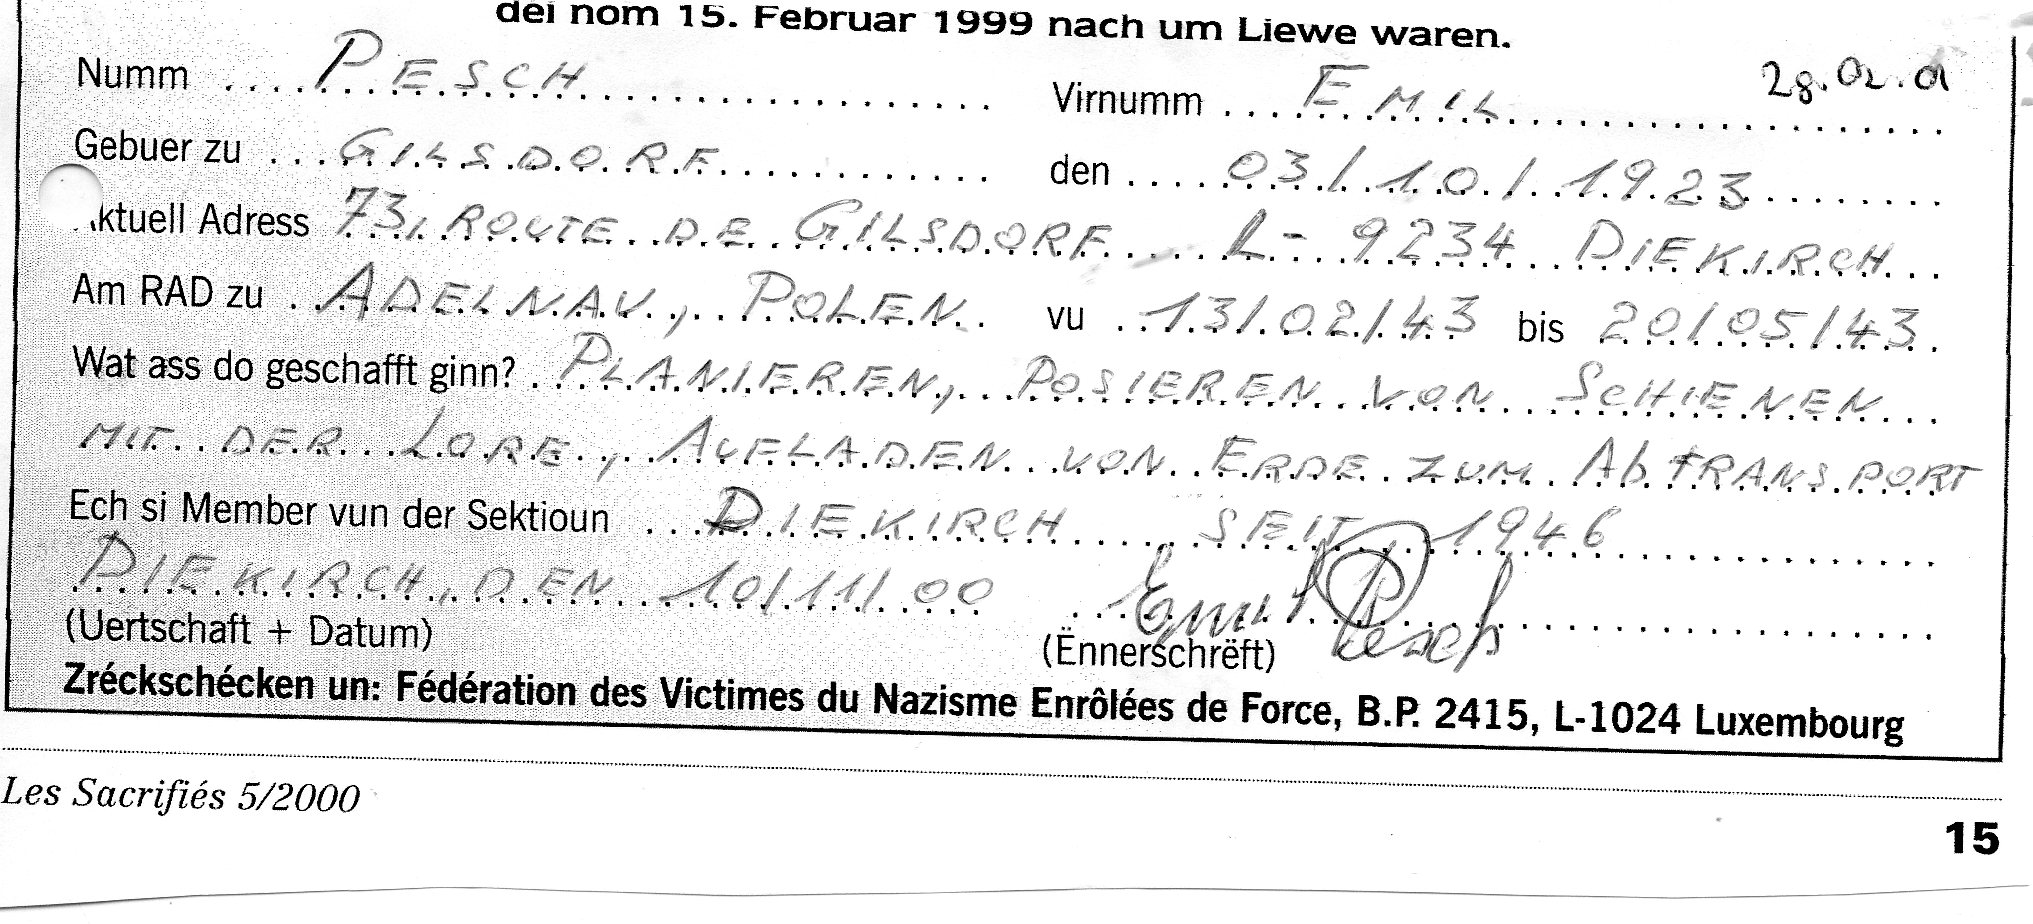 déi nom 15. Februar 1999 nach um Liewe waren.
28.02.01
Numm PESCH Virnumm EMIL
Gebuer zu GILSDORF den 03/10/1923
Aktuell Adress 73, ROUTE DE GILSDORF L-9234 DIEKIRCH
Am RAD zu ADELNAU, POLEN vu 13/02/43 bis 20/05/43
Wat ass do geschafft ginn? PLANIEREN, POSIEREN VON SCHIENEN
MIT DER LORE, AUFLADEN VON ERDE ZUM AbTRANSPORT
Ech si Member vun der Sektioun DIEKIRCH SEIT 1946
DIEKIRCH, DEN 10/11/00 Emil Pesch
(Uertschaft + Datum) (Ënnerschrëft)
Zréckschécken un: Fédération des Victimes du Nazisme Enrôlées de Force, B.P. 2415, L-1024 Luxembourg
Les Sacrifiés 5/2000
15